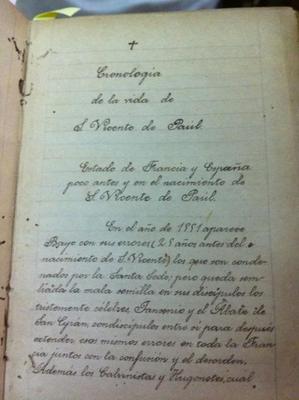 †
Cronologia
de la vida de
S. Vicente de Paúl.
Estado de Francia y España
poco antes y en el nacimiento de
S. Vicente de Paúl.
En el año de 1551 aparece
Bayo con sus errores (25 años antes del
nacimiento de S. Vicente) los que son conde-
nados por la Santa Sede; pero queda sem-
brada la mala semilla en sus discípulos los
tristemente célebres Jansenio y el Abate de
San Cyran condiscípulos entre si para después
extender esos mismos errores en toda la Fran-
cia juntos con la confusión y el desorden.
Además los Calvinistas y Hugonotes, cual